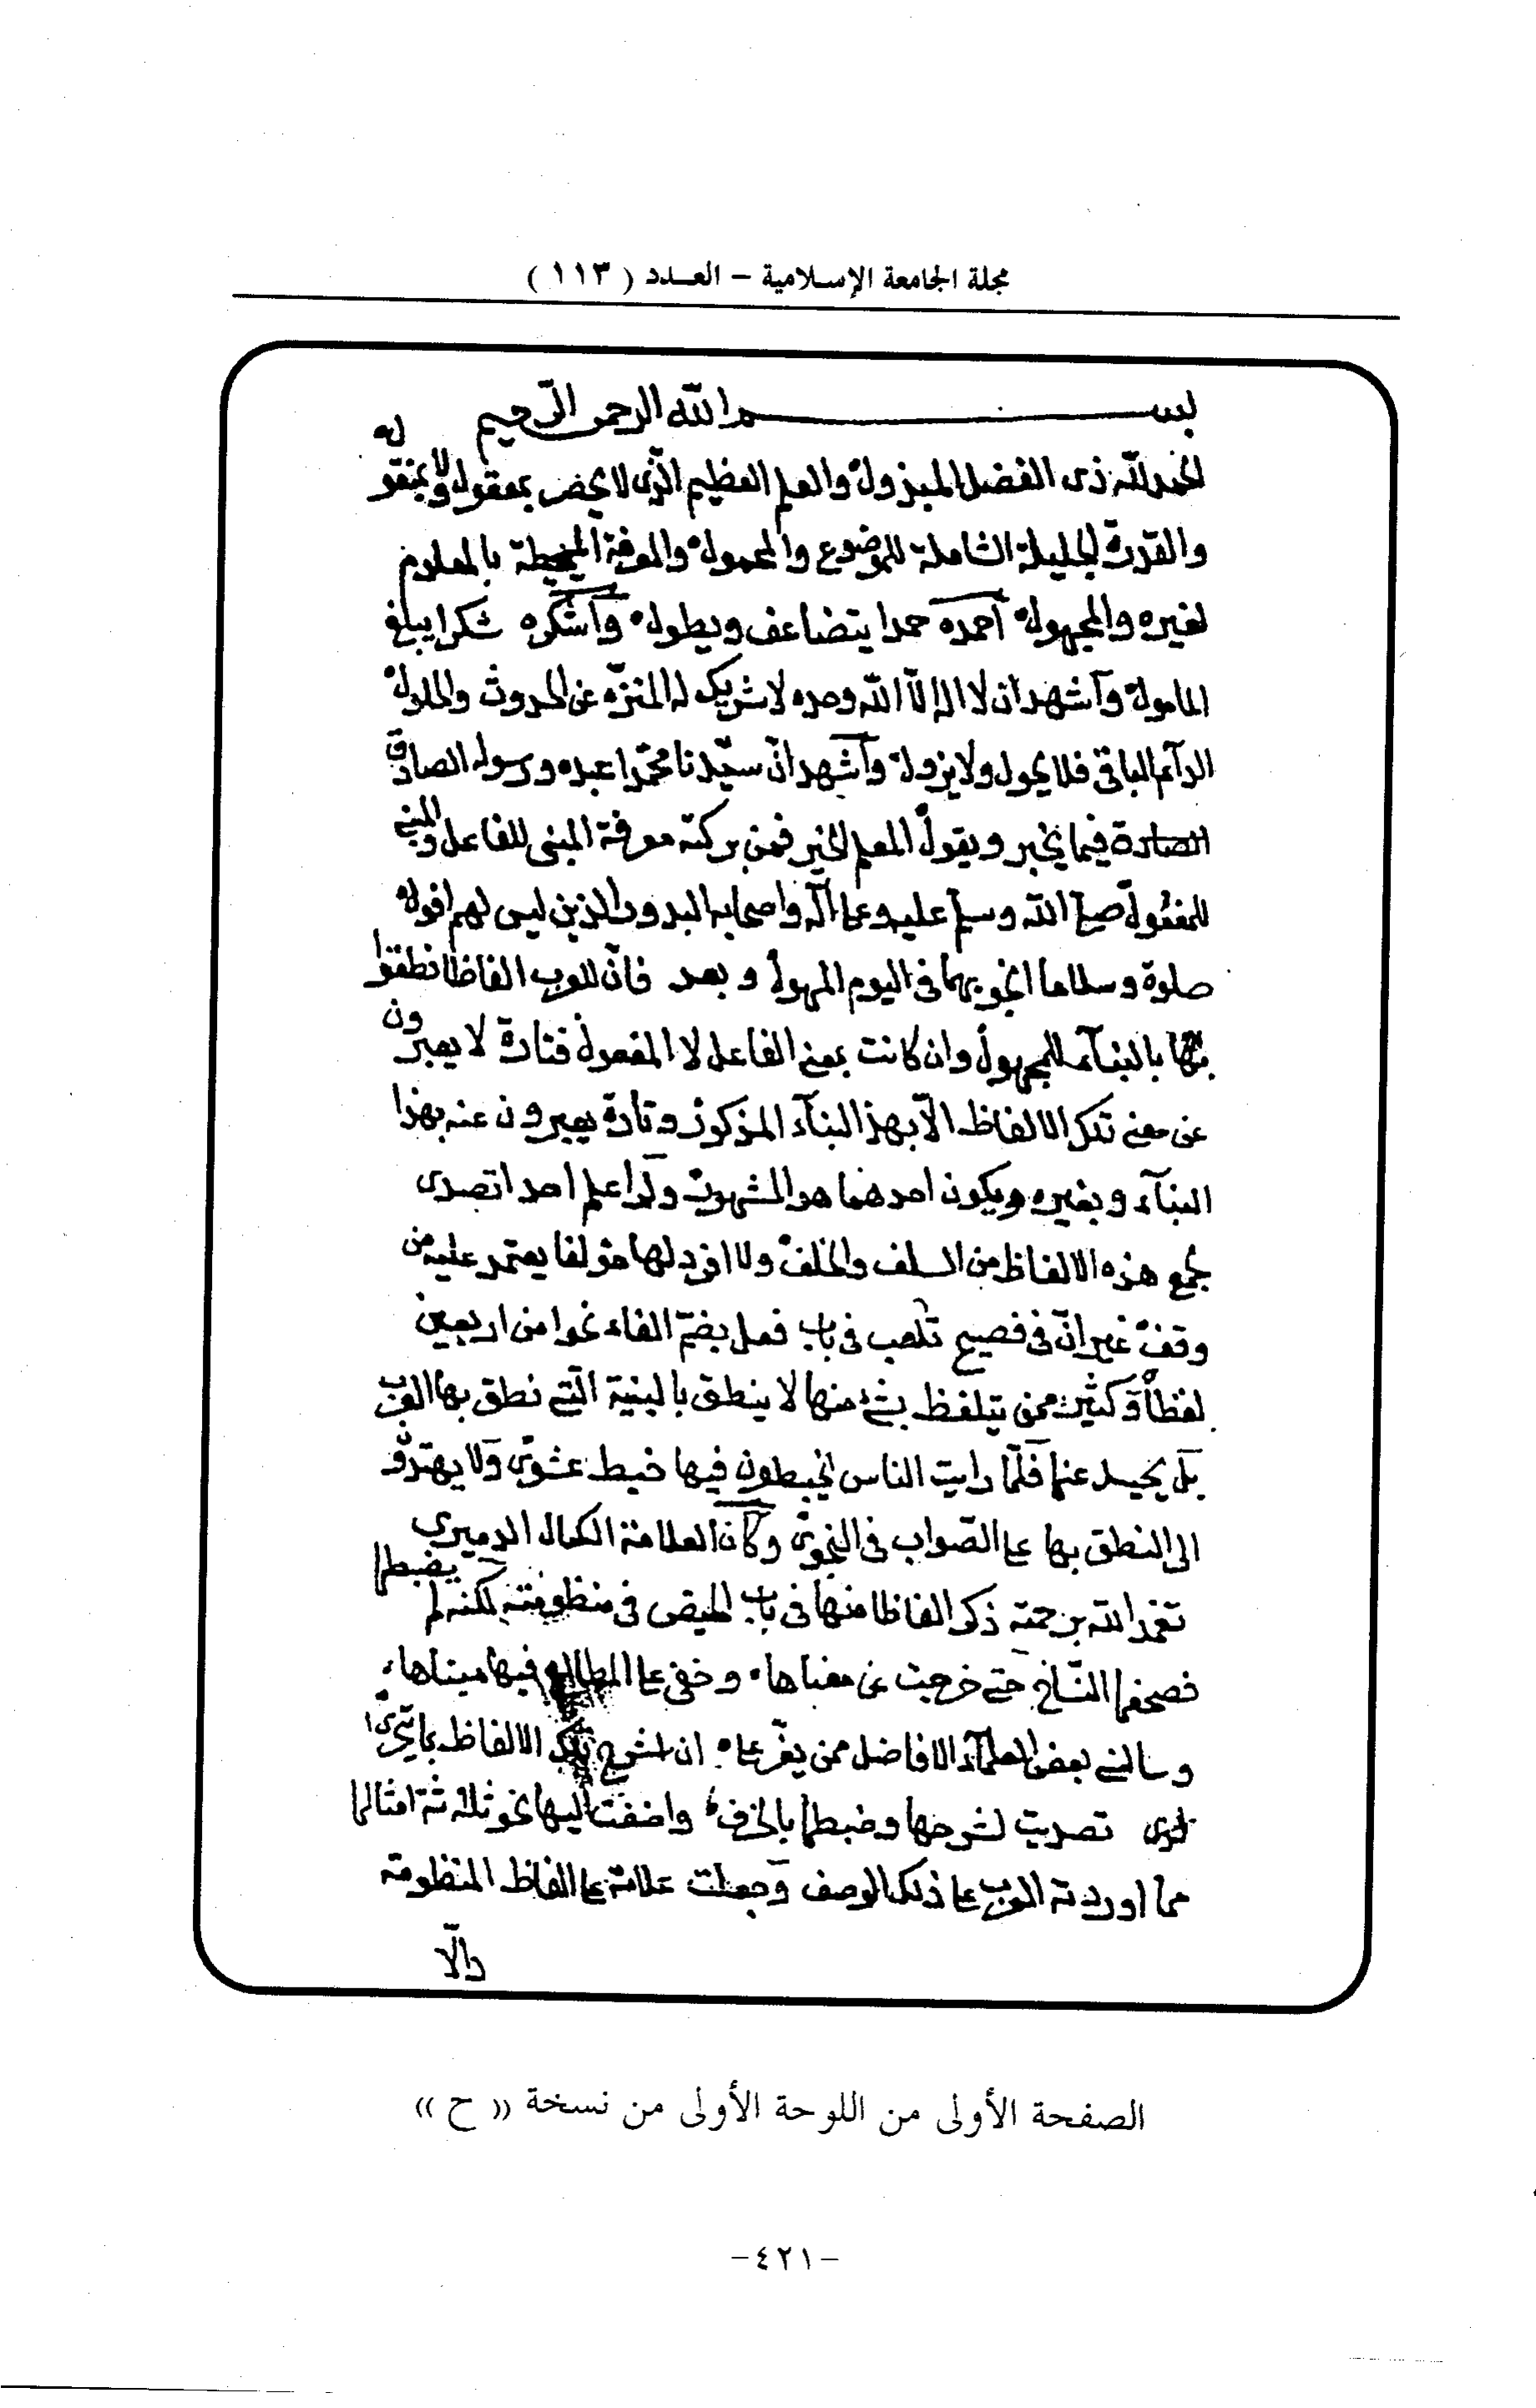 مجلة الجامعة الإسلامية – العـدد ( ١١٣ )
بسم الله الرحمن الرحيم
الحمد لله ذى الفضل المبذول والعلم العظيم الذى لا يختص بمعقول ولا بمنقول
والقدرة الجليلة الشاملة للموضوع والمحمول والمعرفة المحيطة بالمعلوم
لغيره والمجهول أحمده حمدا يتضاعف ويطول وأشكره شكرا يبلغ
المامول وأشهد ان لا اله الا الله وحده لا شريك له المنزه عن الحدوث والحلول
الدآئم الباقى فلا يحول ولا يزول وأشهد انّ سيّدنا محمّدا عبده ورسوله الصادق
فيما يخبر ويقول المعلم الخير فمن بركته معرفة المبنى للفاعل والمبنى
للمفعول صلى الله وسلم عليه وعلى آله واصحابه البدور الذين ليس لهم افول
صلوة وسلاما انجو بهما فى اليوم المهول وبعد فانّ للعرب الفاظا نطقوا
بها بالبنآء للمجهول وان كانت بمعنى الفاعل لا المفعول فتارة لا يعبرون
عن معنى تلك الالفاظ الّا بهذا البنآء المذكور وتارة يعبرون عنه بهذا
البنآء وبغيره ويكون احدهما هو المشهور ولم اعلم احدا تصدى
لجمع هذه الالفاظ من السلف والخلف ولا افرد لها مؤلفا يعتمد عليه من
وقف غير انّ فى فصيح ثعلب فى باب فعل بضم الفاء نحوا من اربعين
لفظاً وكثير ممن يتلفظ بشئ منها لا ينطق بالبنية التى نطق بها العرب
بل يحيد عنها فلمّا رايت الناس يخبطون فيها خبط عشوى ولا يهتدون
الى النطق بها على الصّواب فى النجوى وكان العلامة الكمال الدميري
تغمد الله برحمته ذكر الفاظا منها فى باب الحيض فى منظومته لكنه لم يضبطها
فصحفها النسّاخ حتى خرجت عن معناها وخفى على المطالع فيها مبناها
وسالنى بعض العلمآء الافاضل ممن يقرّ على ان اشرح تلك الالفاظ بما تيسّر
لدى تصديت لشرحها وضبطها بالحرف واضفت اليها نحو ثلاثة امثالها
مما اوردته العرب على ذلك الوصف وجعلت علامة على الفاظ المنظومة
دالّا
الصفحة الأولى من اللوحة الأولى من نسخة (( ح ))
-٤٢١-